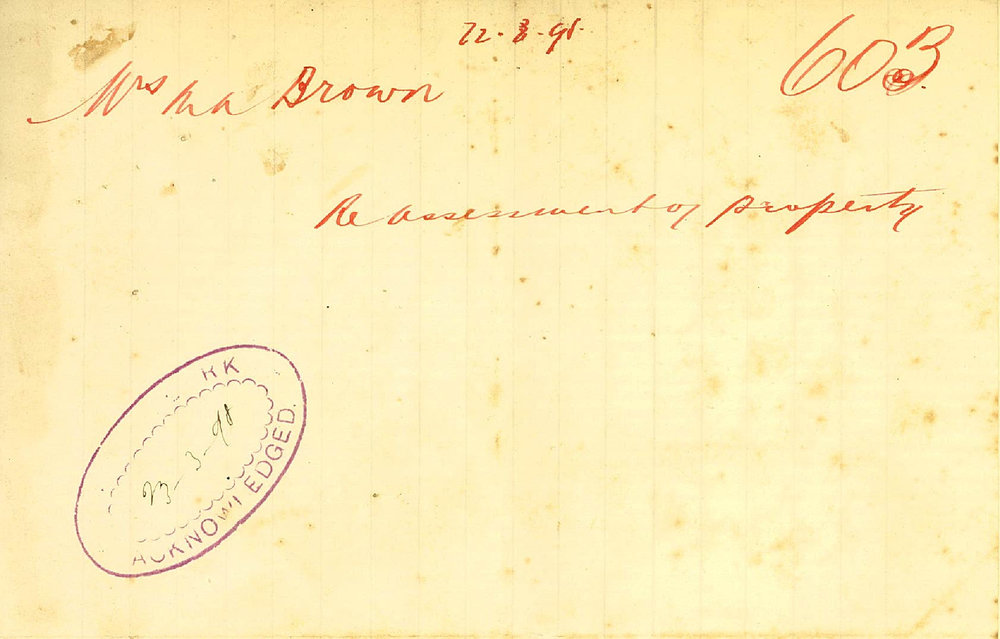 22-3-98.
603
Mrs M A Brown
Re assessment of property
RK
23-3-98
ACKNOWLEDGED.